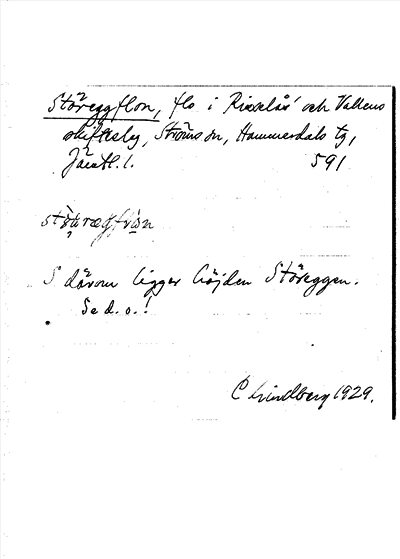 Störeggflon, flo i Risselås och Vallens
skifteslag, Ströms sn, Hammerdals tg,
Jämtl. l. 591
S därom ligger höjden Störeggen.
Se d. o.!
C Lindberg 1929.